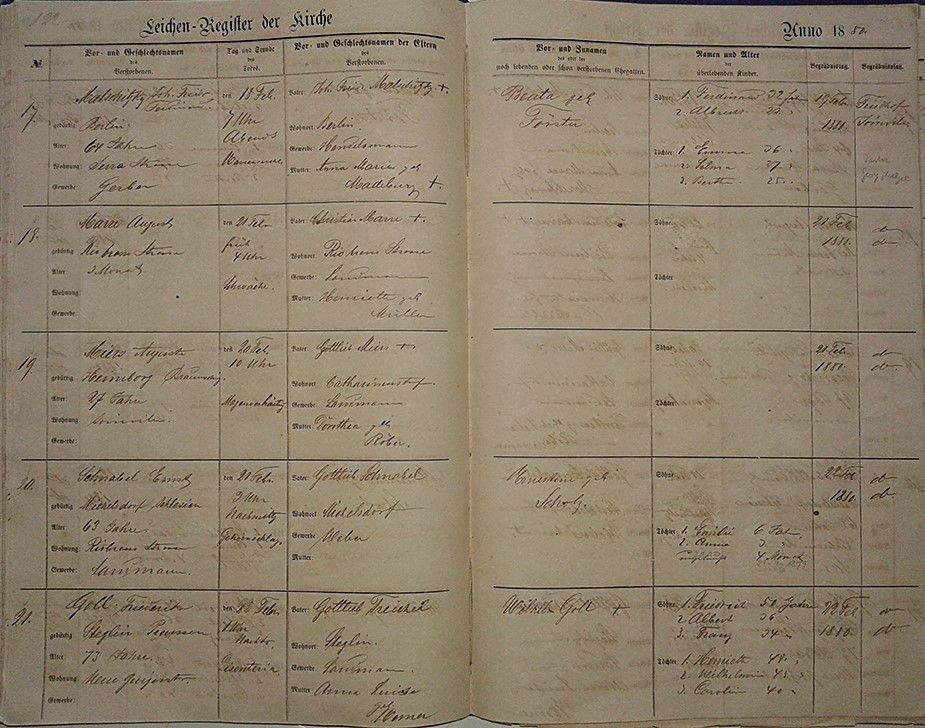 122
Leichen-Register der Kirche
Anno 1880.
№
Vor- und Geschlechtsnamen
des
Verstorbenen.
Tag und Stunde
des
Todes.
Vor- und Geschlechtsnamen der Eltern
des
Verstorbenen.
Vor- und Zunamen
des oder der
noch lebenden oder schon verstorbenen Ehegatten.
Namen und Alter
der
überlebenden Kinder.
Begräbnißtag.
Begräbnißplatz.
17.
Malschitzky Joh. Fried.
Ferdinand
gebürtig Berlin
64 Jahre
Wohnung
Gewerbe Gerber
den 18 Feb.
7 Uhr
Abends
Vater: Joh. Fried. Malschitzky +
Wohnort Berlin
Gewerbe Handelsmann
Mutter: Anna Marie geb
Madeburg +
Beata geb
Förster
Söhne: 1. Ferdinand 32 Jah
2. Albrecht
Töchter: 1. Emma 36
2. Selma 27
3. Berth 25
19 Feb
1880
Friedhof
18.
Marre August
gebürtig
Alter: 3 Monat
Wohnung:
Gewerbe:
den 20 Feb
früh
4 Uhr
Schwäche
Vater: Christian Marre +
Wohnort
Gewerbe: Landmann
Mutter: Henriette geb
Müller
Söhne:
Töchter
21 Feb
1880.
do
do
19
Miers Auguste
gebürtig Braunschweig.
Alter: 27 Jahre
Wohnung
Gewerbe:
den 20 Feb.
10 Uhr
Vater: Gottlieb Miers +
Wohnort Catharinenstorf.
Gewerbe Landmann
Mutter: Dorothea geb
Röber.
Söhne:
Töchter:
21 Feb.
1880.
do
do
20.
Schnabel Ernst
gebürtig Michelsdorf Schlesien
Alter: 63 Jahre
Wohnung:
Gewerbe: Landmann.
den 21 Feb.
3 Uhr
Nachmittg
Gehirnschlag
Vater: Gottlieb Schnabel
Wohnort Michelsdorf
Gewerbe Weber
Mutter:
Ernestine geb
Scholz.
Söhne:
Töchter 1. Emilie 6 Jah
2. Anna 3
4 Monat
22 Feb
1880
do
do
21.
Goll Friederike
gebürtig Steglin Preussen
Alter: 73 Jahre
Wohnung
Gewerbe:
den 22 Feb.
1 Uhr
Disenteria
Vater: Gottlieb Treichel
Wohnort: Steglin.
Gewerbe: Landmann.
Mutter Anna Luise
Werner
Wilhelm Goll +
Söhne: 1. Friedrich 50 Jahre
2. Albert 36
3. Franz 34
Töchter 1. Henriette 48
2. Wilhelmine 45
3. Caroline 40
22 Feb
1880.
do
do